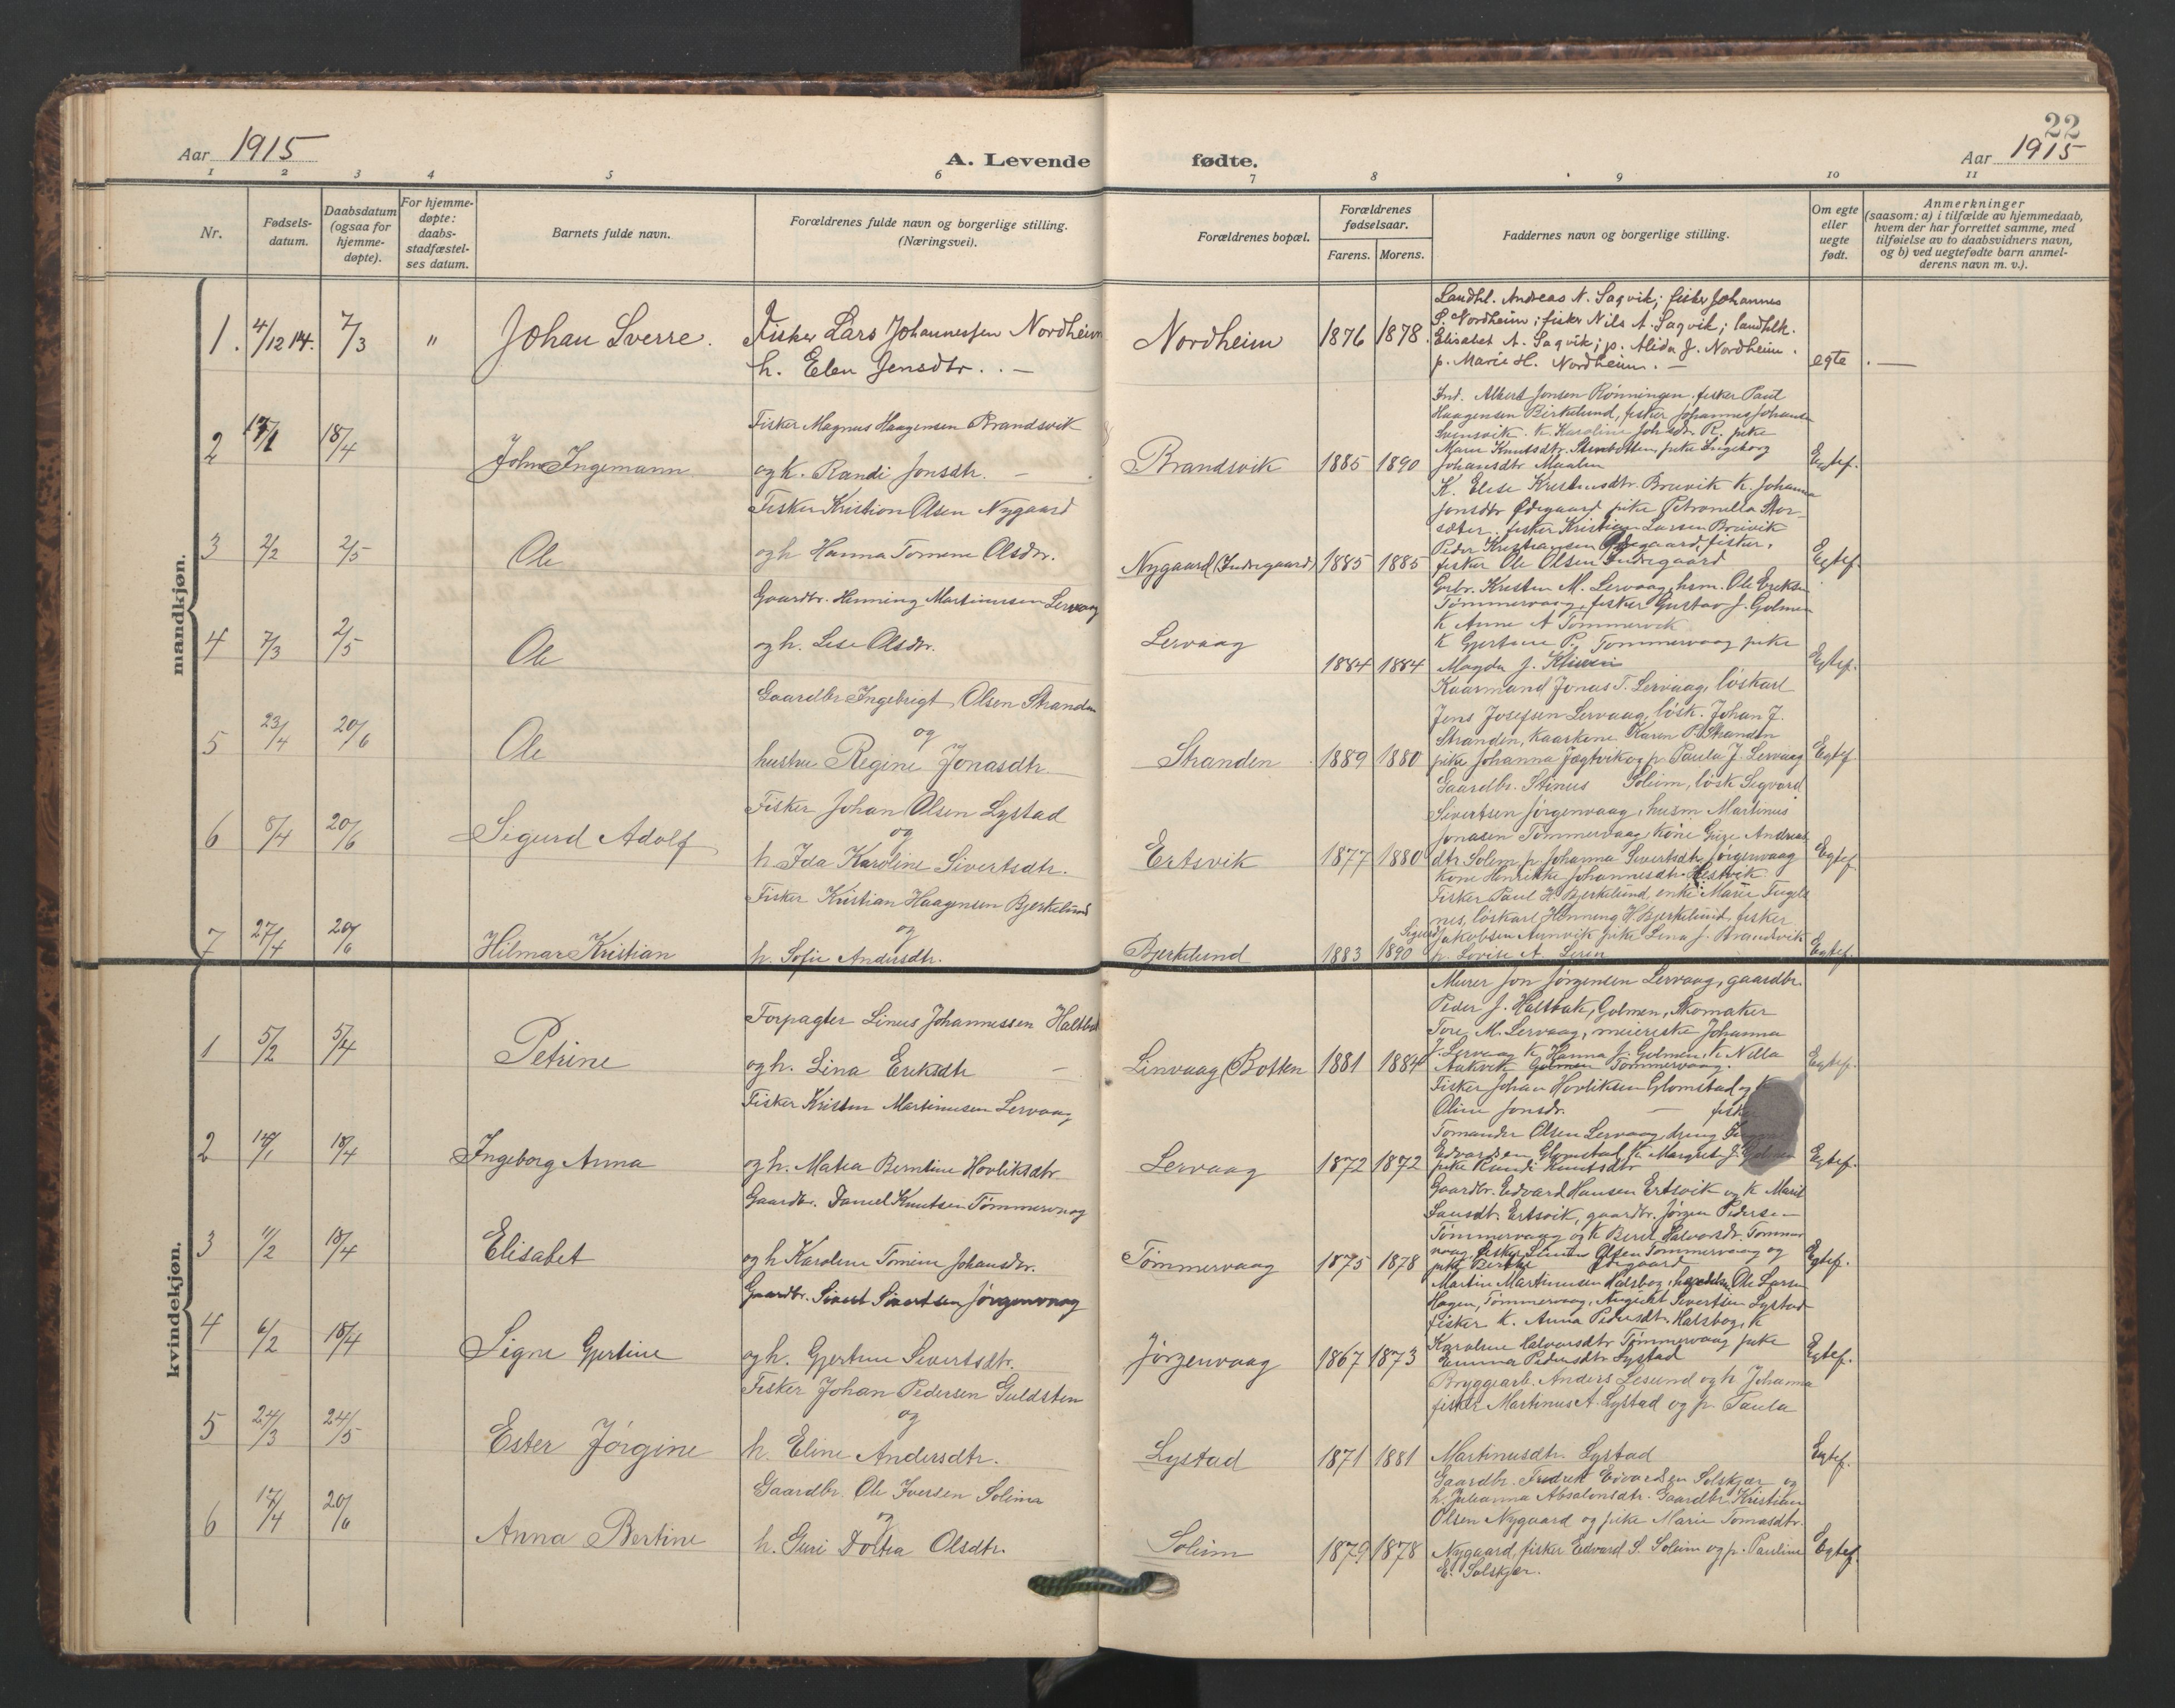 22
Aar 1915 A. Levende fødte. Aar 1915
1 2 3 4 5 6 7 8 9 10 11
Nr.
Fødsels-
datum.
Daabsdatum
(ogsaa for
hjemme-
døpte).
For hjemme-
døpte:
daabs-
stadfæstel-
ses datum.
Barnets fulde navn.
Forældrenes fulde navn og borgerlige stilling.
(Næringsvei).
Forældrenes bopæl.
Forældrenes
fødselsaar.
Farens. Morens.
Faddernes navn og borgerlige stilling.
Om egte
eller
uegte
født.
Anmerkninger
(saasom: a) i tilfælde av hjemmedaab,
hvem der har forrettet samme, med
tilføielse av to daabsvidners navn,
og b) ved uegtefødte barn anmel-
derens navn m. v.).
mandkjøn.
1. 4/12 14. 7/3 " Johan Sverre.
Fisker Lars Johannessen Nordheim
h. Elen Jensdtr. . –
Nordheim 1876 1878.
Landhl. Andreas N. Sagvik; fisker Johannes
S. Nordheim; fisker Nils A. Sagvik; landhlk.
Elisabet A. Sagvik; p. Alida J. Nordheim.
p. Marie H. Nordheim. –
egte
2 18/4 John Ingemann
Fisker Magnus Haagensen Brandsvik
og k. Randi Jonsdtr. –
Brandsvik 1885 1890
Ind. Albert Jonsen Rønningen, fisker Paul
Haagensen Birkelund, fisker Johannes Johansen
Svensvik. k. Karoline Johsdtr R, pike
Maria Knutsdtr. Stenbotten, pike Ingeborg
Johansdtr Maalen
Egtef.
3 2/2 2/5 Ole
Fisker Kristian Olsen Nygaard
og h Hanna Tomine Olsdtr.
Nygaard (Indregaard) 1885 1885
K. Elise Kristensdtr. Breivik k. Johanna
Jonsdtr Ødegaard pike Petronella Stor-
sæter, fisker Kristian Larsen Breivik
Peder Kristiansen Ødegaard, fisker,
fisker Ole Olsen Indregaard
Egtef.
4 7/3 2/5 Ole
Gaardbr. Henning Martinusen Lervaag
og h. Lise Olsdtr.
Lervaag 1884 1884
Gbr. Kristen M. Lervaag, hsm. Ole Eriksen
Tømmervaag, fisker Gustav J. Golmen
K Anne A Tømmervik
K Gjertine P. Tommervaag pike
Magda J.
Egtef.
5 23/4 20/6 Ole
Gaardbr Ingebrigt Olsen Stranden
og
hustru Regine Jonasdtr.
Stranden 1889 1880
Kaarmand Jonas T. Lervaag, løskarl
Jens Josefsen Lervaag, løsk. Johan J.
Stranden, kaarkone Karen P. Stranden
pike Johanna Jægtvik og p. Paula J. Lervaag
Egtef
6 8/4 20/6 Sigurd Adolf
Fisker Johan Olsen Lystad
og
h. Ida Karoline Sivertsdtr.
Ertsvik 1877 1880
Gaardbr. Stinus Soleim, løsk Segvard
Sivertsen Jørgenvaag, husm Martinus
Jonasen Tømmervaag, kone Andreas
dtr Solem, p. Johanna Sivertsdtr. Jørgenvaag
kone Henrikke Johannesdtr. Hestvik
Egtef
7 27/4 20/6 Hilmar Kristian
Fisker Kristian Haagensen Bjerkelund
og
h. Sofie Andersdtr.
Bjerkelund 1883 1890
Fisker Paul H. Bjerkelund, enke Marie Fugle
nes, løskarl Henning H. Bjerkelund, fisker
Sigurd Jakobsen Aunvik pike Lina J. Brandsvik
p. Lovise A. Leren
Egtef.
kvindekjøn.
1 5/2 5/4 Petrine
Forpagter Linus Johannessen Haltbak
og h. Lina Eriksdtr –
Linvaag (Botten 1881 1884
Murer Jon Jørgensen Lervaag, gaardbr.
Peder J. Haltbak, Golmen, Skomaker
Tore M. Lervaag, meierske Johanna
J. Lervaag K. Hanna J. Golmen, k Nilla
Aukvik Golmen Tømmervaag.
Egtef.
2 14/1 18/4 Ingeborg Anna
Fisker Kristen Martinusen Lervaag
og h. Matea Berntine Hovliksdtr
Lervaag 1872 1872
Fisker Johan Hovliksen Glomstad og k
Oline Jonsdtr. – fisker
Tomander Olsen Lervaag, dreng
Edvardsen Glomstad, k. Margret J. Golmen
pike Randi Knutsdtr
Egtef.
3 11/2 18/4 Elisabet
Gaardbr. Daniel Knutsen Tømmervaag
og h Karoline Tomine Johansdtr.
Tømmervaag 1875 1878
Gaardbr. Edvard Hansen Ertsvik og k Marit
Larsdtr. Ertsvik, gaardbr. Jørgen Pedersen
Tømmervaag og k Beret Halvorsdtr. Tømmer
vaag, fisker Olsen Tommervaag og
pike Bertha Ødegaard
Egtef.
4 6/2 18/4 Signe Gjertine
Gaardbr. Sivert Sivertsen Jørgenvaag
og h. Gjertine Sivertsdtr.
Jørgenvaag 1867 1873
Martin Martinusen Halsbog, Ole Larsen
Hagen, Tømmervaag, August Sivertsen Lystad
fisker k. Anna Pedersdtr. Halsbog, k
Karoline Halvorsdtr Tømmervaag pike
Emma Pedersdtr Lystad
Egtef.
5 24/3 24/5 Ester Jørgine
Fisker Johan Pedersen Guldsten
og
h. Eline Andersdtr.
Lystad 1871 1881
Bryggearb. Anders Lesund og h Johanna
fisker Martinus A. Lystad og p. Paula
Martinusdtr. Lystad
Egtef.
6 17/4 20/6 Anna Bertine
Gaardbr. Ole Iversen Soleim
og
h. Guri Dortea Olsdtr.
Soleim 1879 1878
Gaardbr. Fredrik Edvardsen Solskjær og
h. Julianna Absalonsdtr. Gaardbr. Kristian
Olsen Nygaard og pike Marie Tomasdtr.
Nygaard, fisker Edvard S. Soleim og p. Pauline
E. Solskjær.
Egtef.